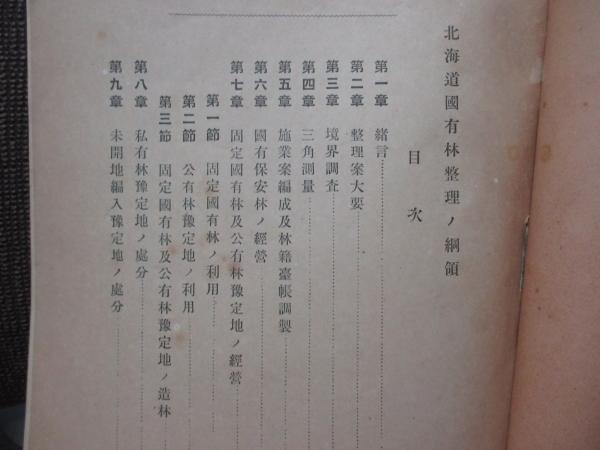 北海道國有林整理ノ綱領
目次
第一章 緒言
第二章 整理案大要
第三章 境界調査
第四章 三角測量
第五章 施業案編成及林籍臺帳調製
第六章 國有保安林ノ經營
第七章 固定國有林及公有林豫定地ノ經營
第一節 固定國有林ノ利用
第二節 公有林豫定地ノ利用
第三節 固定國有林及公有林豫定地ノ造林
第八章 私有林豫定地ノ處分
第九章 未開地編入豫定地ノ處分